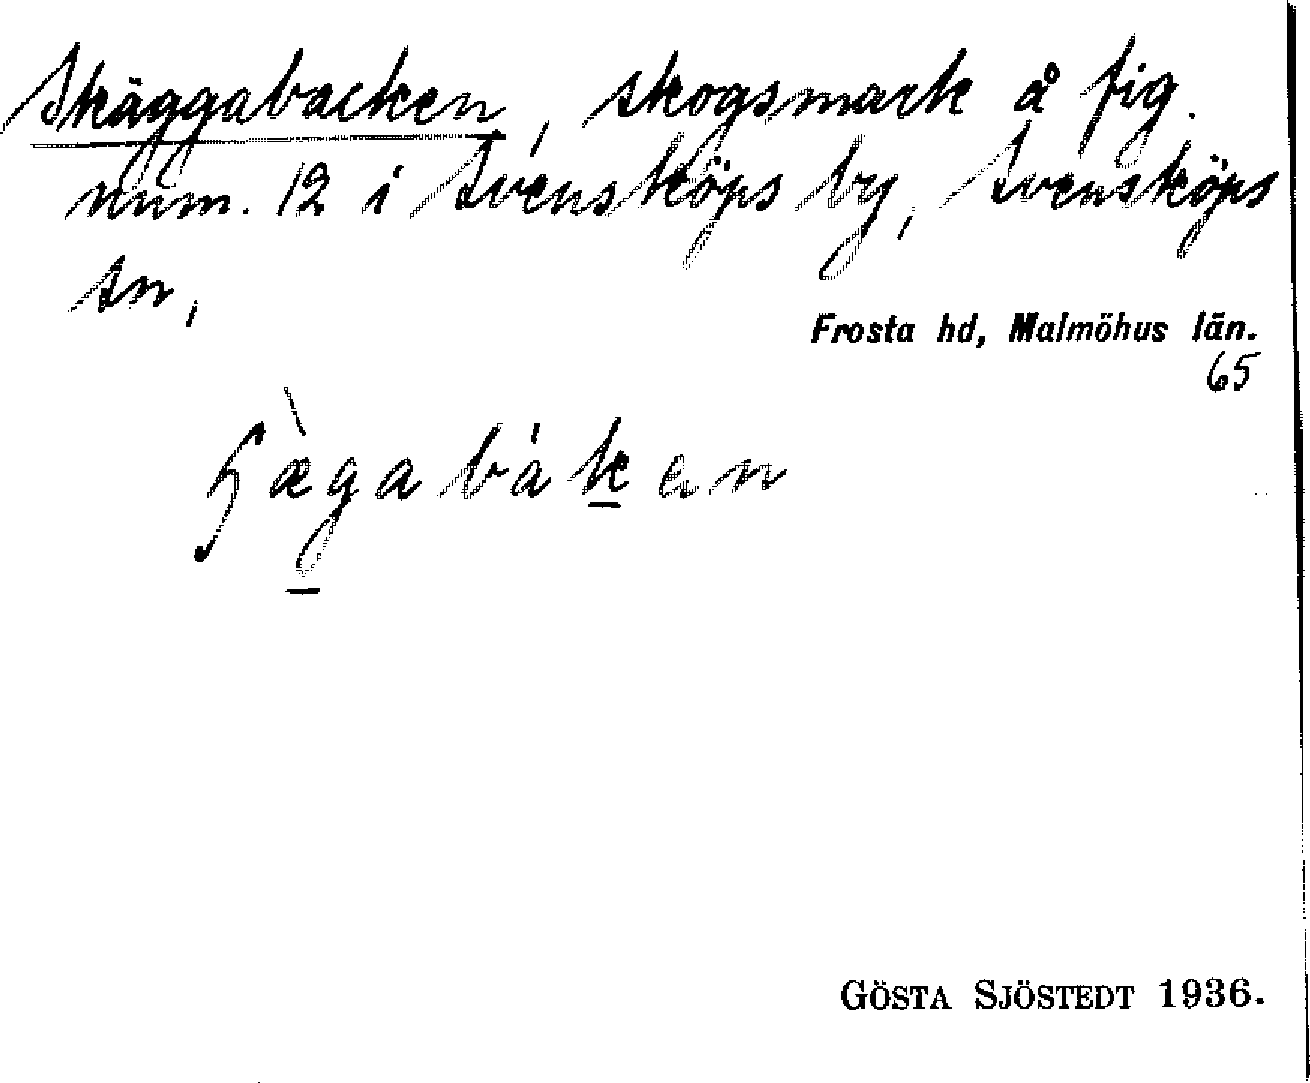 Skäggabacken, skogsmark å fig.
num. 12 i Svensköps by, Svensköps
sn,
Frosta hd, Malmöhus län.
65
GÖSTA SJÖSTEDT 1936.